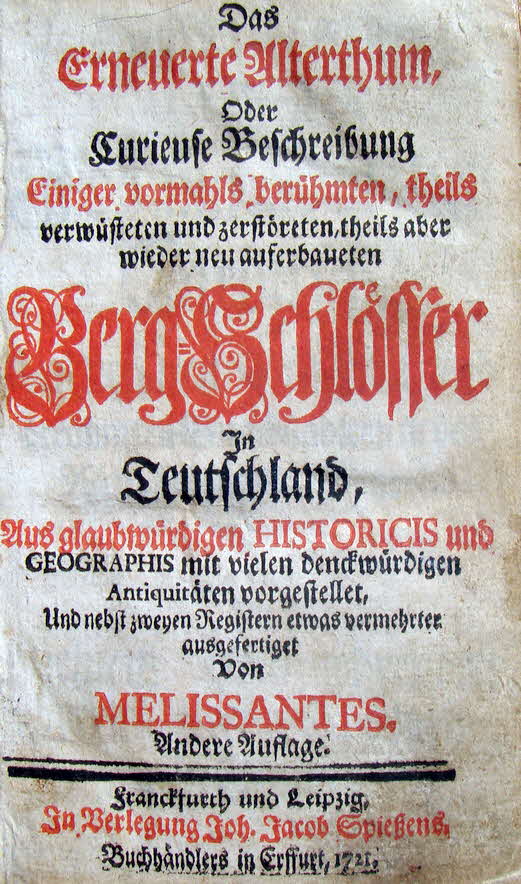 Das
Erneuerte Alterthum,
Oder
Curieuse Beschreibung
Einiger vormahls berühmten, theils
verwüsteten und zerstöreten, theils aber
wieder neu auferbaueten
Berg-Schlösser
In
Teutschland,
Aus glaubwürdigen HISTORICIS und
GEOGRAPHIS mit vielen denckwürdigen
Antiquitäten vorgestellet,
Und nebst zweyen Registern etwas vermehrter
ausgefertiget
Von
MELISSANTES.
Andere Auflage.
Franckfurth und Leipzig,
In Verlegung Joh. Jacob Spießens,
Buchhändlers in Erffurt, 1721.